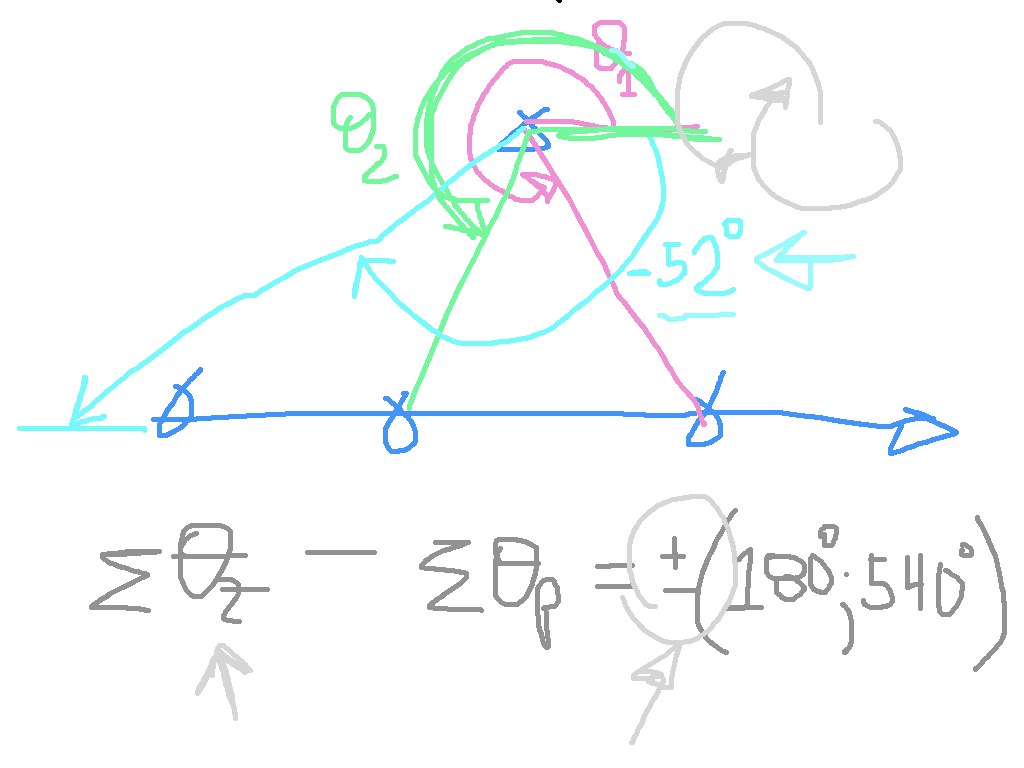 θ1
θ2
-52°
Σθz — Σθp = ±(180°; 540°)